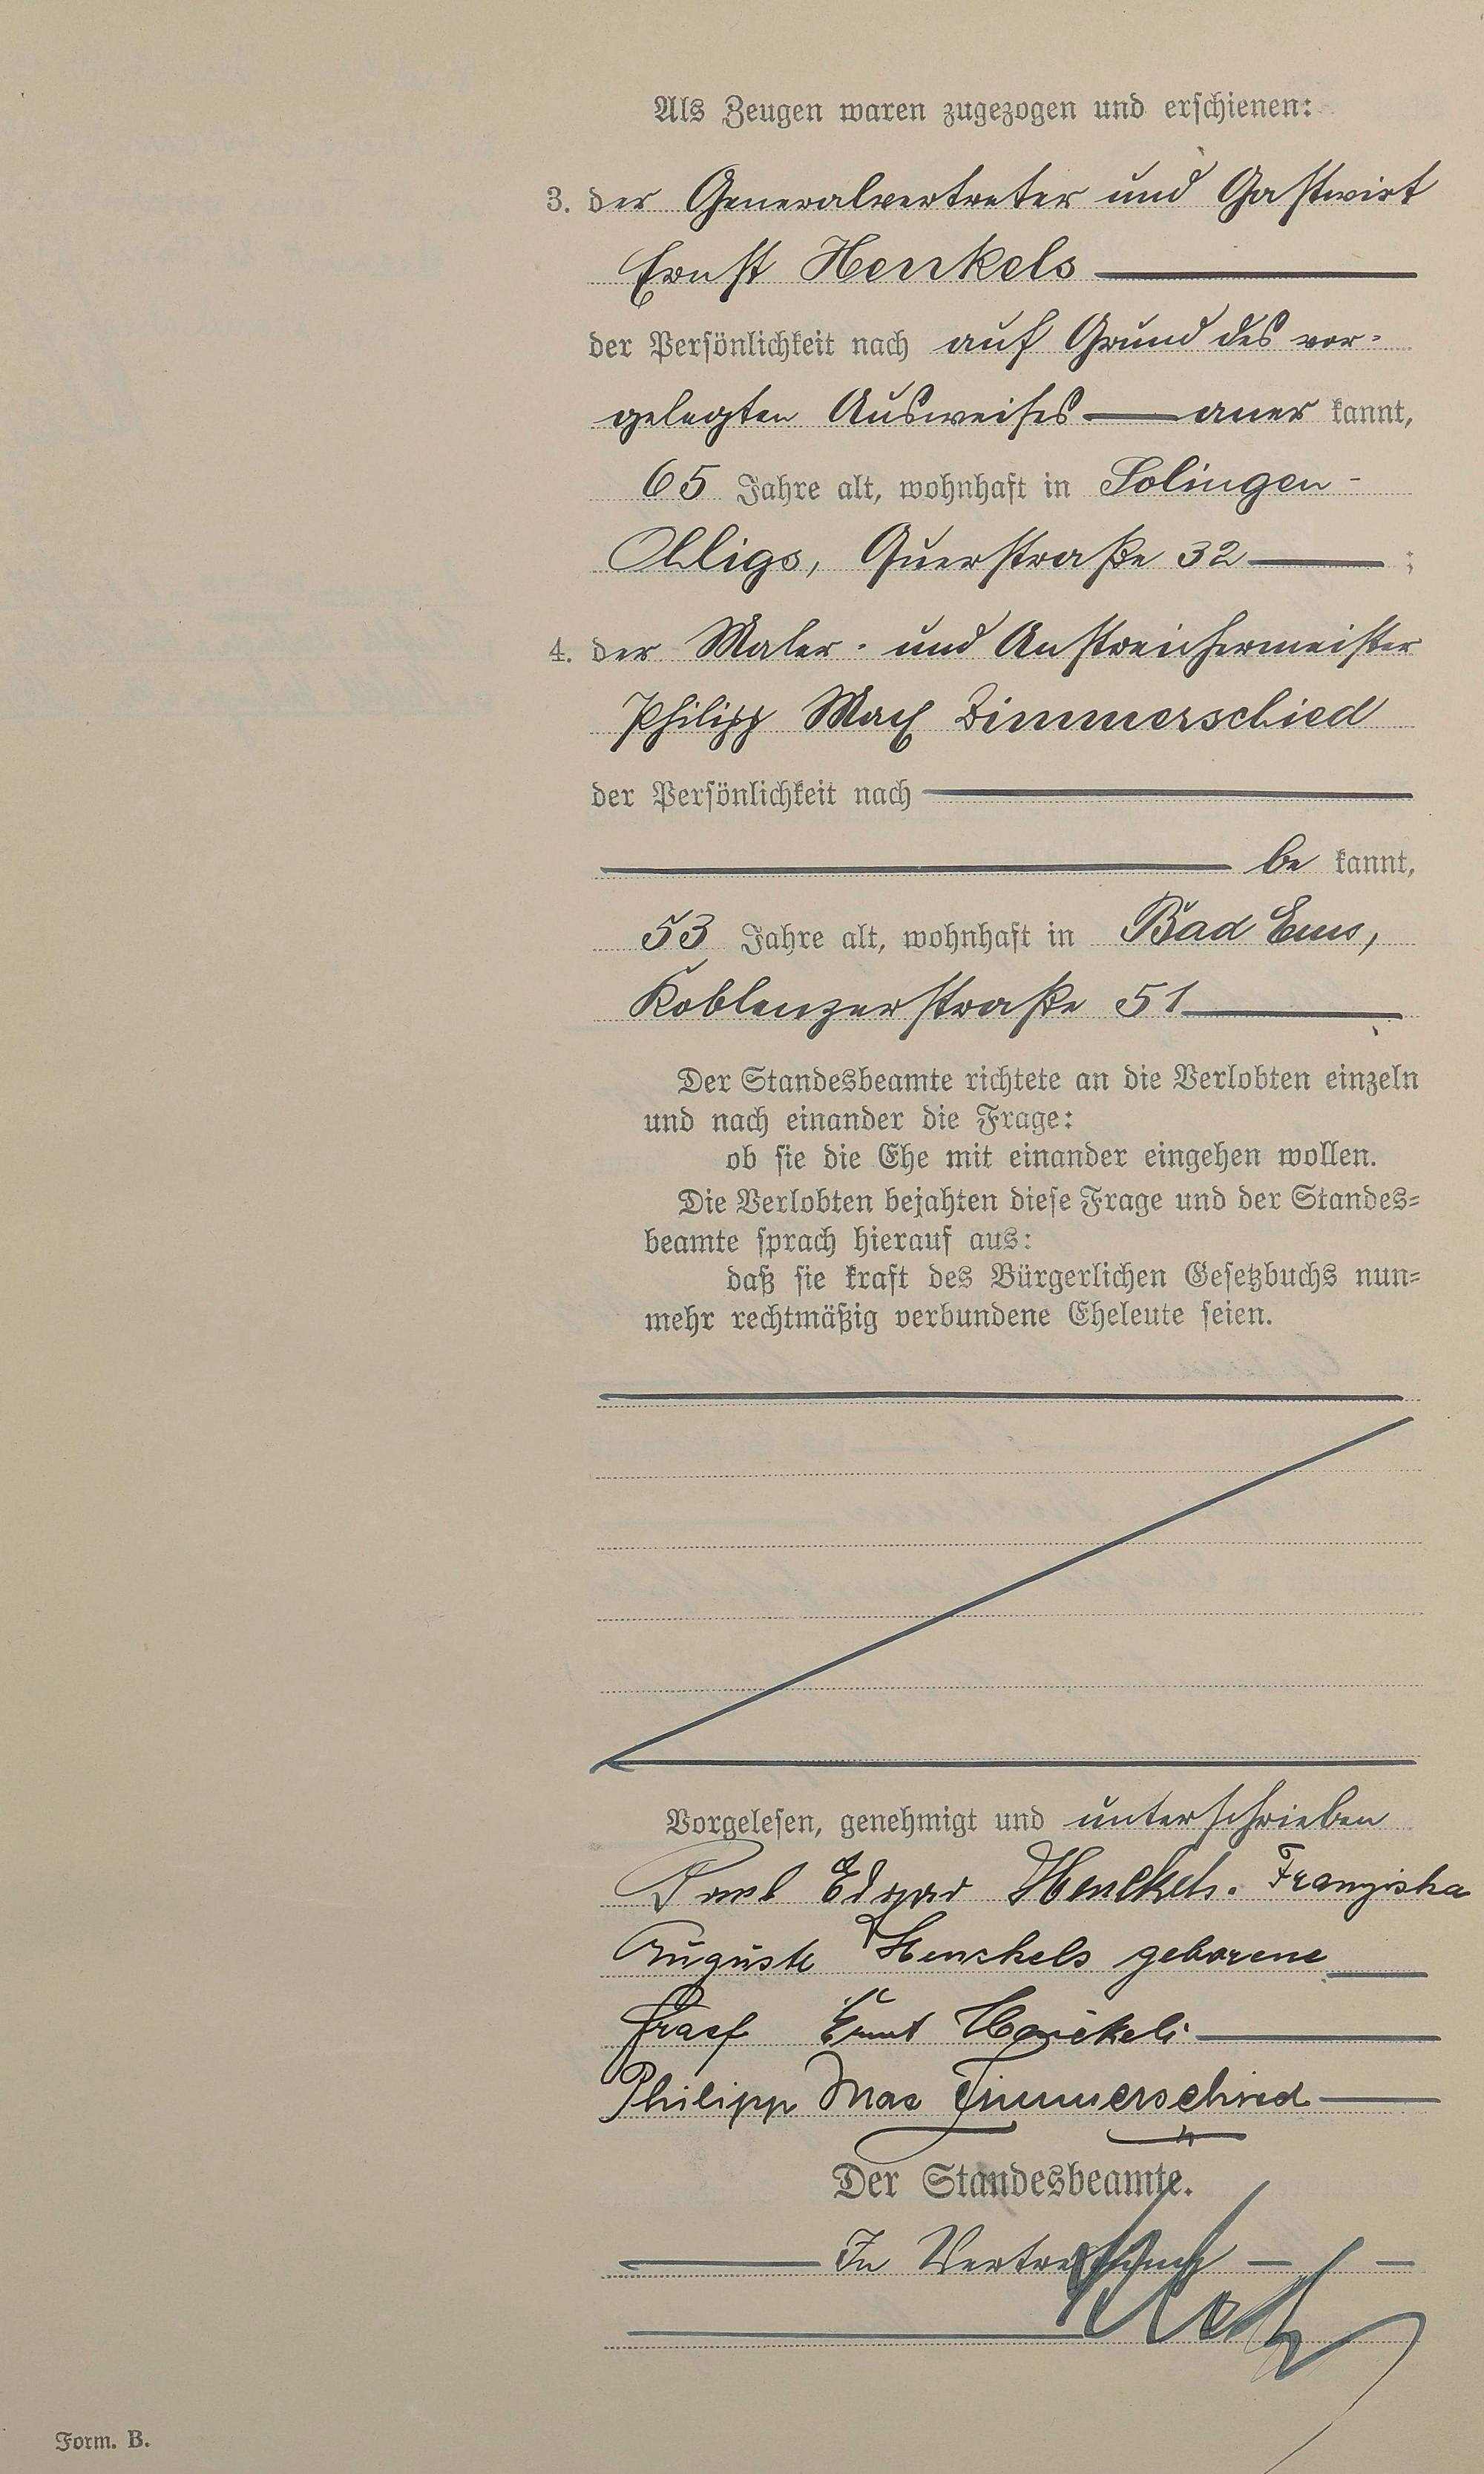 Als Zeugen waren zugezogen und erschienen:
3. der Generalvertreter und Gastwirt
Ernst Henkels
der Persönlichkeit nach auf Grund des vor-
gelegten Ausweises aner kannt,
65 Jahre alt, wohnhaft in Solingen-
Ohligs, Querstraße 32 ;
4. der Maler- und Anstreichermeister
Philipp Max Zimmerschied
der Persönlichkeit nach
be kannt,
53 Jahre alt, wohnhaft in Bad Ems,
Koblenzerstraße 51
Der Standesbeamte richtete an die Verlobten einzeln
und nach einander die Frage:
ob sie die Ehe mit einander eingehen wollen.
Die Verlobten bejahten diese Frage und der Standes-
beamte sprach hierauf aus:
daß sie kraft des Bürgerlichen Gesetzbuchs nun-
mehr rechtmäßig verbundene Eheleute seien.
Vorgelesen, genehmigt und unterschrieben
Paul Edgar Henckels. Franziska
Auguste Henckels geborene
Graef Ernst Henckels
Philipp Max Zimmerschied
Der Standesbeamte.
In Vertretung
Form. B.